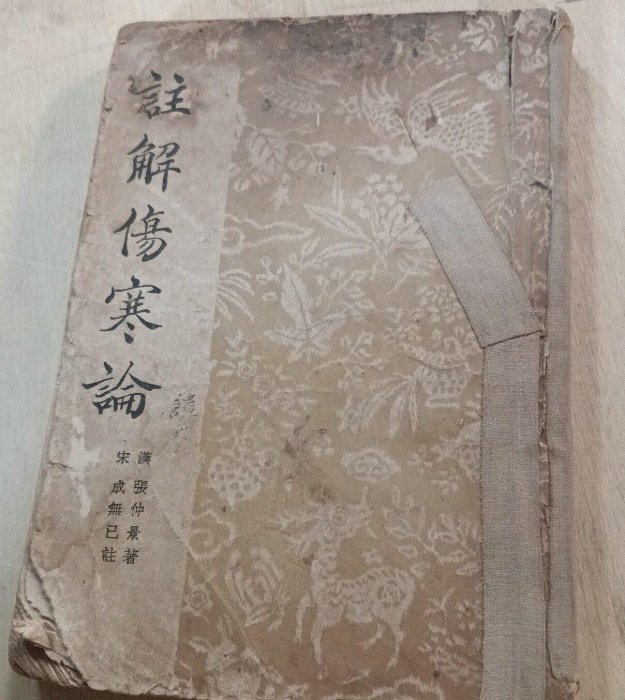 註解傷寒論
漢 張仲景著
宋 成無已註